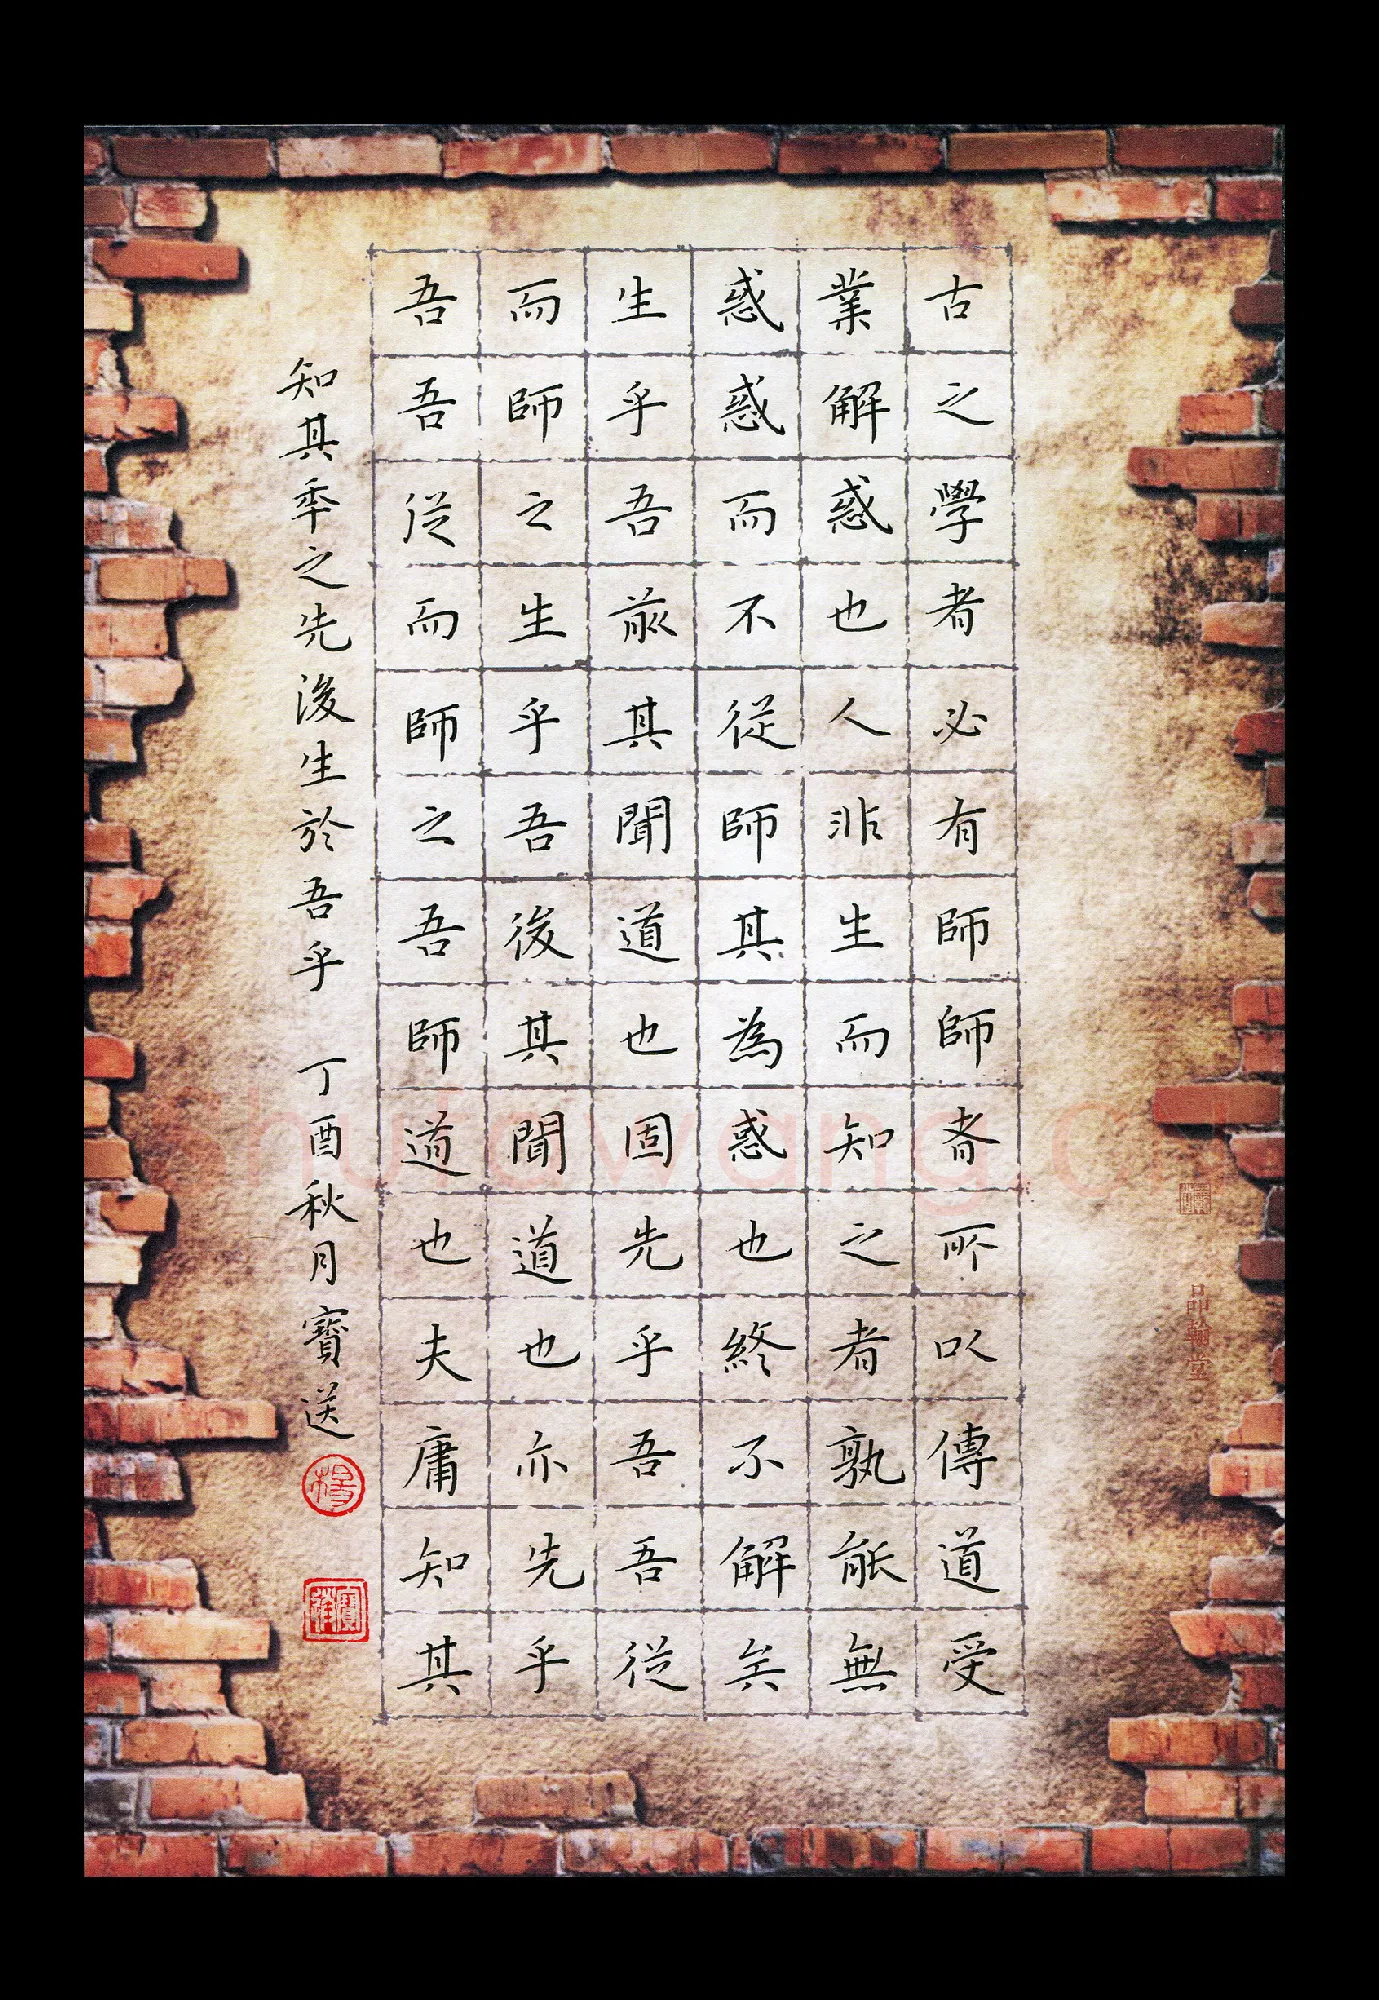 古之學者必有師師者所以傳道受
業解惑也人非生而知之者孰能無
惑惑而不從師其為惑也終不解矣
生乎吾前其聞道也固先乎吾吾從
而師之生乎吾後其聞道也亦先乎
吾吾從而師之吾師道也夫庸知其
知其秊之先後生於吾乎 丁酉秋月寶送
楊
品翰堂
shufawang.cn